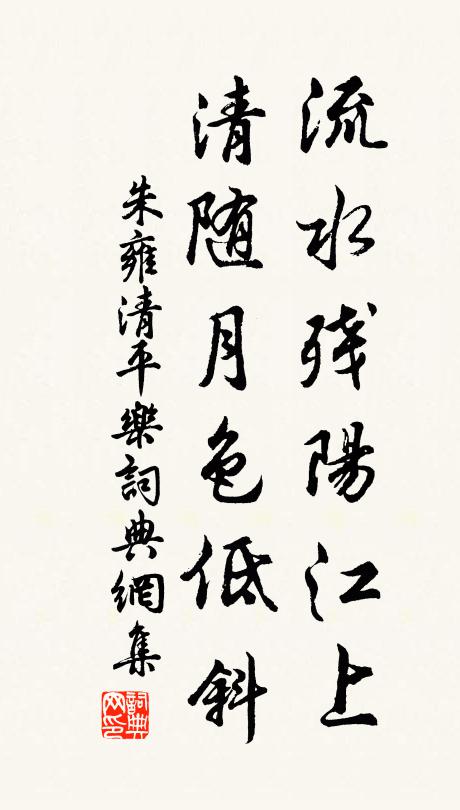 流水残陽江上
清随月色低斜
朱雍清平樂詞典網集
詞典网印